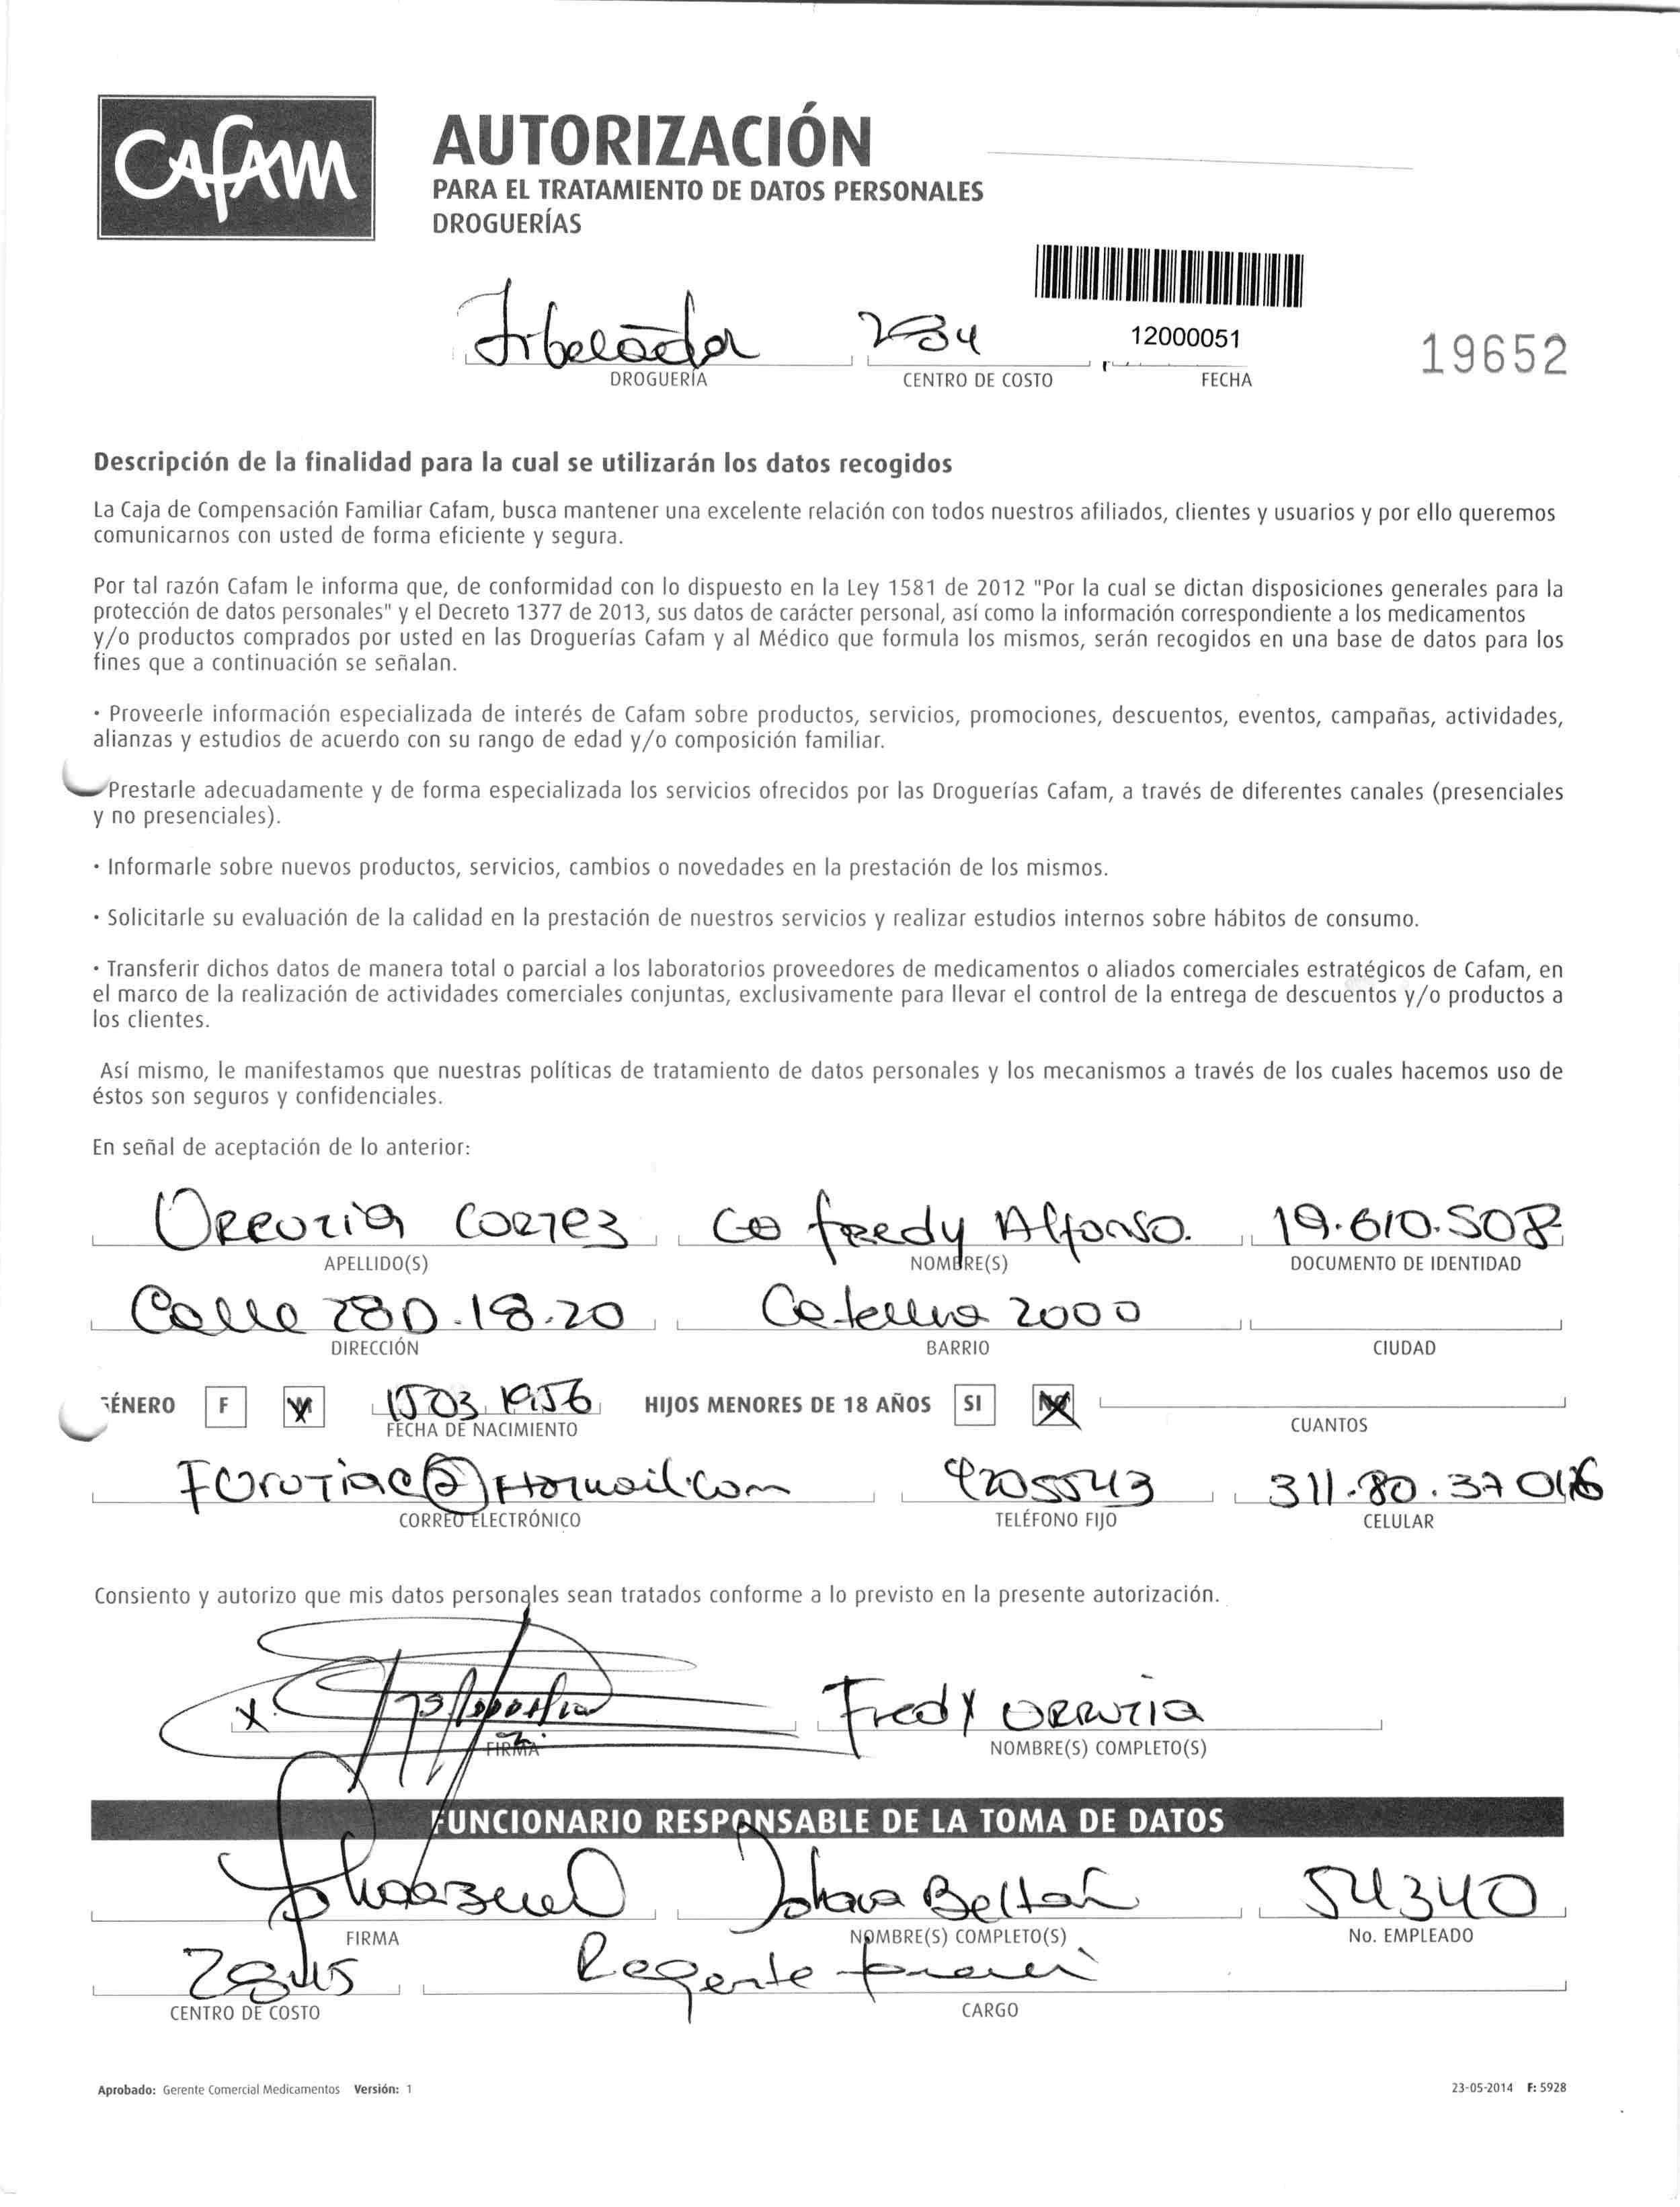 CAFAM
AUTORIZACIÓN
PARA EL TRATAMIENTO DE DATOS PERSONALES
DROGUERÍAS
12000051
19652
DROGUERÍA CENTRO DE COSTO FECHA
Descripción de la finalidad para la cual se utilizarán los datos recogidos
La Caja de Compensación Familiar Cafam, busca mantener una excelente relación con todos nuestros afiliados, clientes y usuarios y por ello queremos
comunicarnos con usted de forma eficiente y segura.
Por tal razón Cafam le informa que, de conformidad con lo dispuesto en la Ley 1581 de 2012 "Por la cual se dictan disposiciones generales para la
protección de datos personales" y el Decreto 1377 de 2013, sus datos de carácter personal, así como la información correspondiente a los medicamentos
y/o productos comprados por usted en las Droguerías Cafam y al Médico que formula los mismos, serán recogidos en una base de datos para los
fines que a continuación se señalan.
· Proveerle información especializada de interés de Cafam sobre productos, servicios, promociones, descuentos, eventos, campañas, actividades,
alianzas y estudios de acuerdo con su rango de edad y/o composición familiar.
Prestarle adecuadamente y de forma especializada los servicios ofrecidos por las Droguerías Cafam, a través de diferentes canales (presenciales
y no presenciales).
· Informarle sobre nuevos productos, servicios, cambios o novedades en la prestación de los mismos.
· Solicitarle su evaluación de la calidad en la prestación de nuestros servicios y realizar estudios internos sobre hábitos de consumo.
· Transferir dichos datos de manera total o parcial a los laboratorios proveedores de medicamentos o aliados comerciales estratégicos de Cafam, en
el marco de la realización de actividades comerciales conjuntas, exclusivamente para llevar el control de la entrega de descuentos y/o productos a
los clientes.
Así mismo, le manifestamos que nuestras políticas de tratamiento de datos personales y los mecanismos a través de los cuales hacemos uso de
éstos son seguros y confidenciales.
En señal de aceptación de lo anterior:
Cortez Fredy Alfonso. 19.610.508
APELLIDO(S) NOMBRE(S) DOCUMENTO DE IDENTIDAD
Calle 28D.18.20 2000
DIRECCIÓN BARRIO CIUDAD
GÉNERO F M 1503 1956 HIJOS MENORES DE 18 AÑOS SI NO
FECHA DE NACIMIENTO CUANTOS
4205543
CORREO ELECTRÓNICO TELÉFONO FIJO CELULAR
Consiento y autorizo que mis datos personales sean tratados conforme a lo previsto en la presente autorización.
X Fredy
FIRMA NOMBRE(S) COMPLETO(S)
FUNCIONARIO RESPONSABLE DE LA TOMA DE DATOS
Johana Beltrán 54340
FIRMA NOMBRE(S) COMPLETO(S) No. EMPLEADO
Regente
CENTRO DE COSTO CARGO
Aprobado: Gerente Comercial Medicamentos Versión: 1 23-05-2014 F: 5928